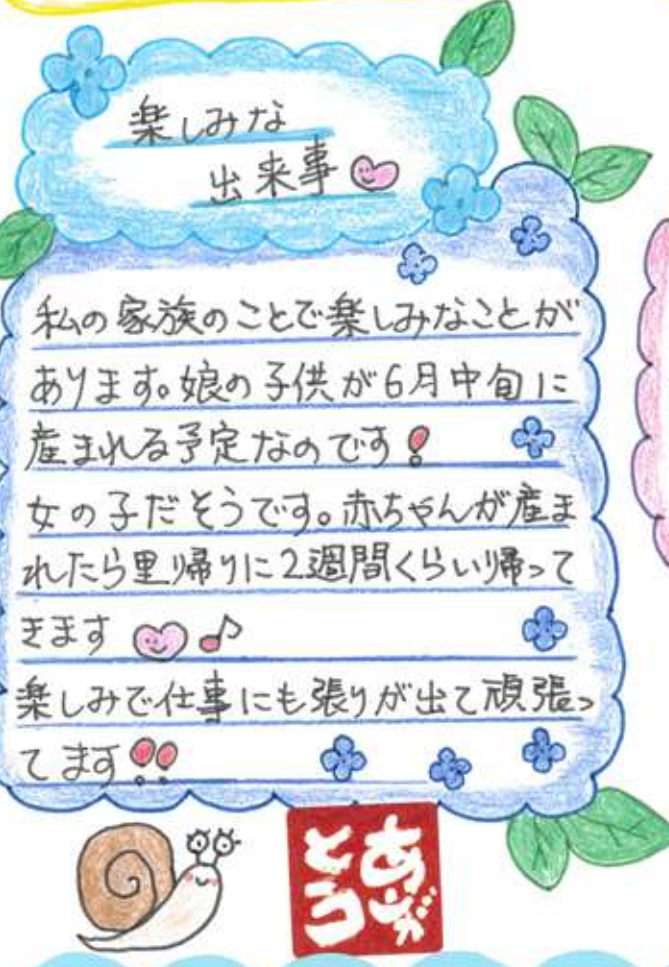 楽しみな
出来事
私の家族のことで楽しみなことが
あります。娘の子供が6月中旬に
産まれる予定なのです!
女の子だそうです。赤ちゃんが産ま
れたら里帰りに2週間くらい帰って
きます
楽しみで仕事にも張りが出て頑張っ
てます!!
ありが
とう